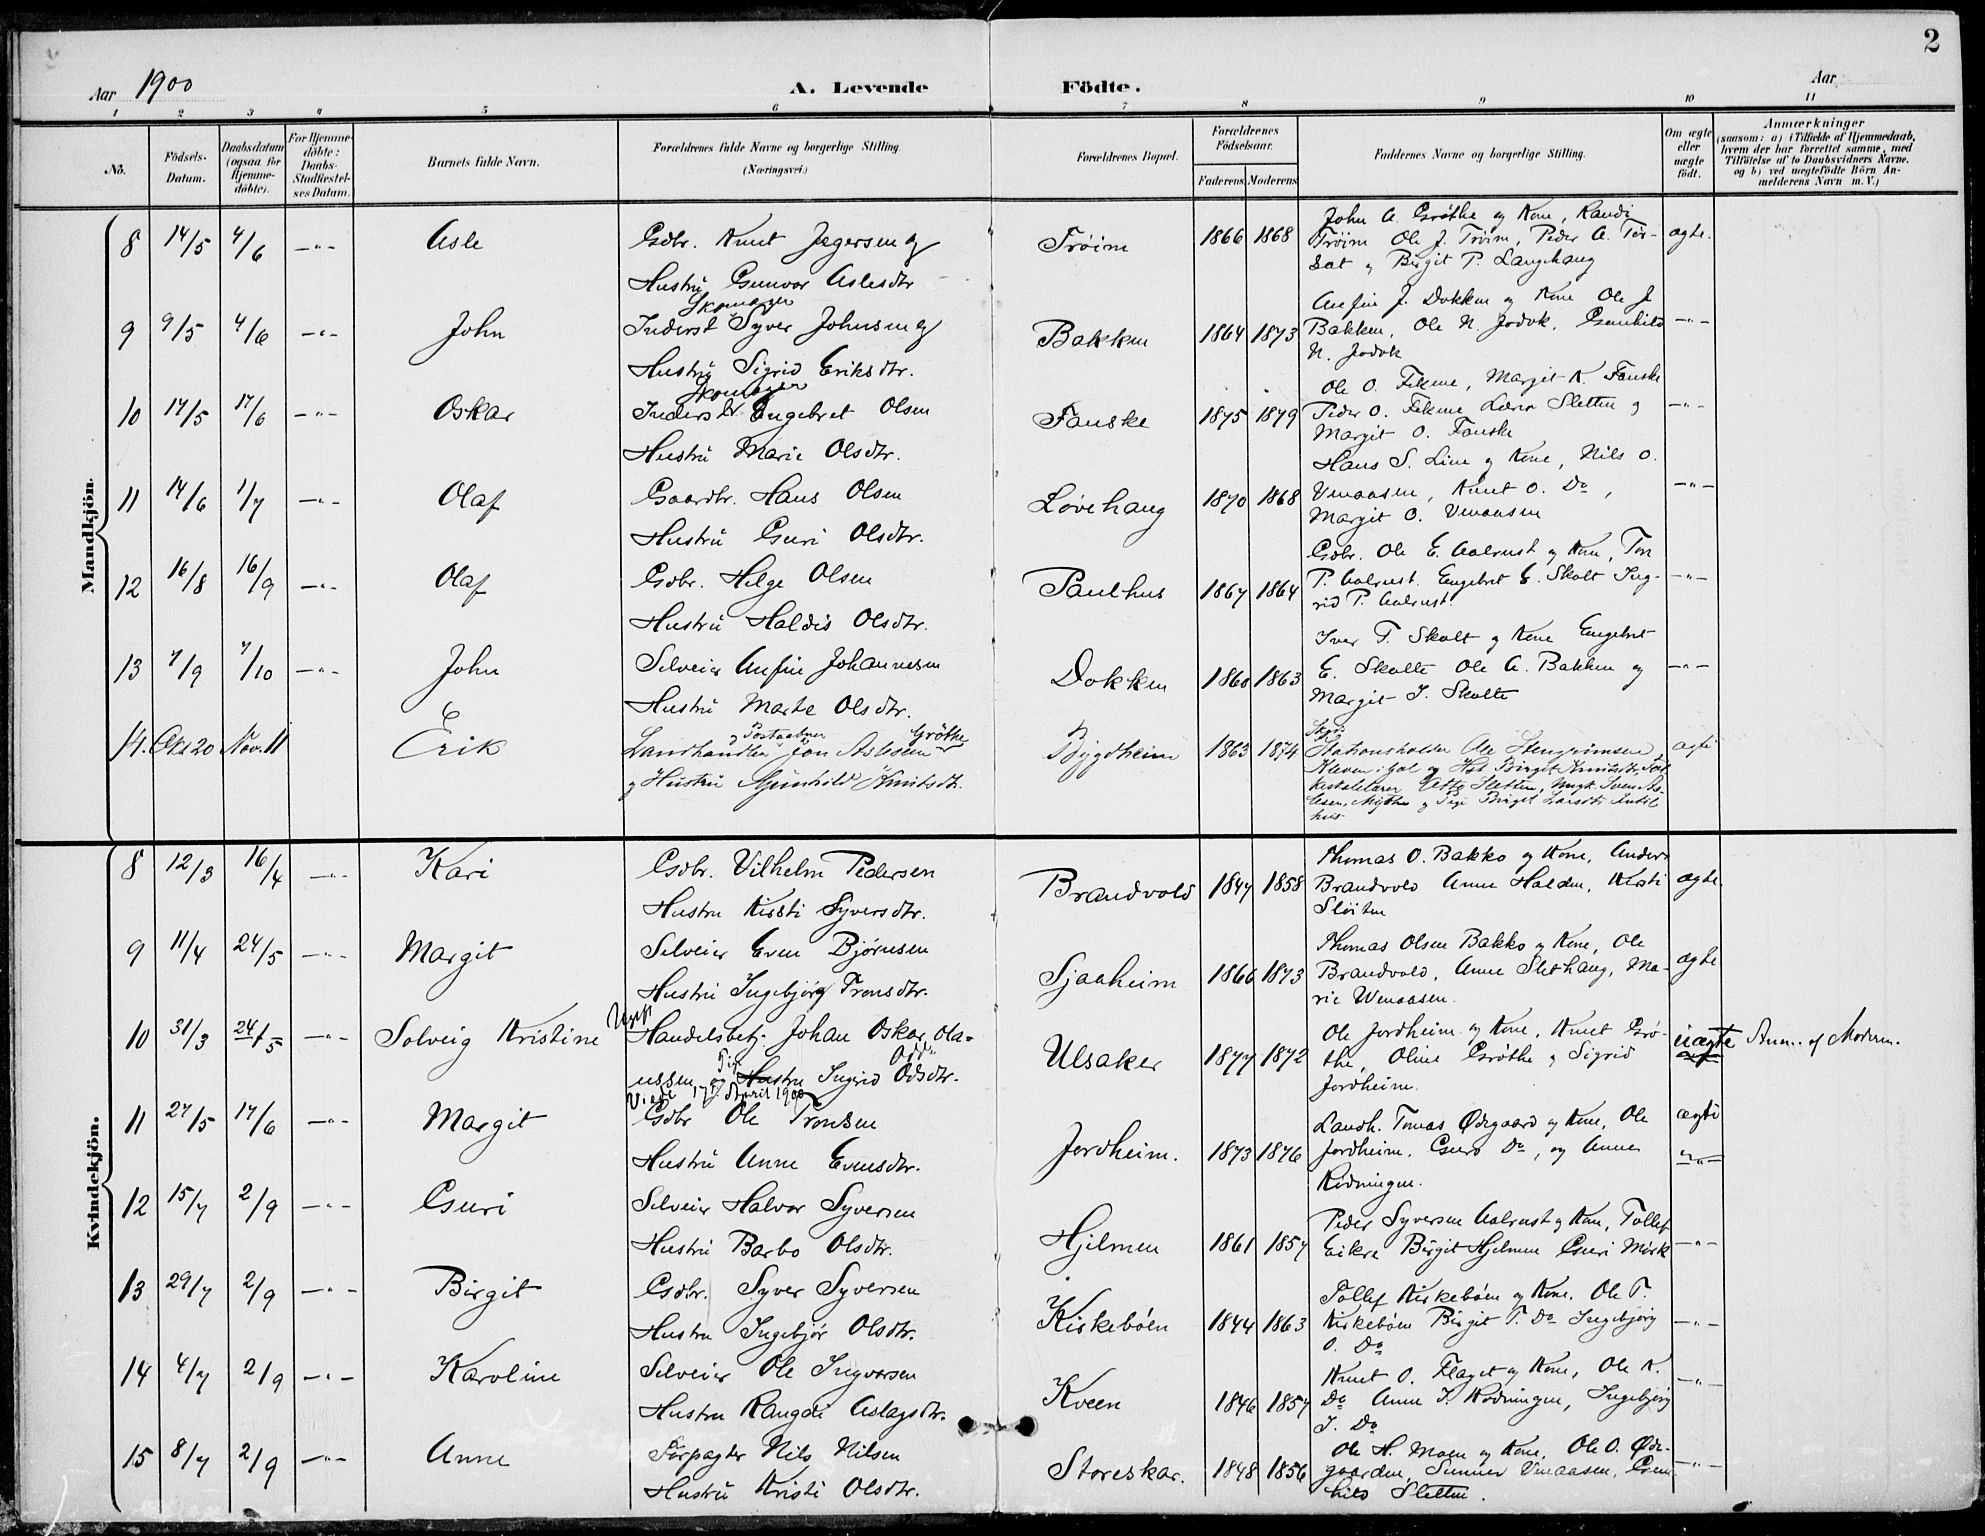 2
Aar 1900
A. Levende Födte.
Aar
1 2 3 4 5 6 7 8 9 10 11
No.
Födsels-Datum.
Daabsdatum (ogsaa for Hjemme-döbte).
For Hjemme-döbte: Daabs-Stadfæstel-ses Datum.
Barnets fulde Navn.
Forældrenes fulde Navne og borgerlige Stilling. (Næringsvei.)
Forældrenes Bopæl.
Forældrenes Födselsaar.
Faderens Moderens
Faddernes Navne og borgerlige Stilling.
Om ægte eller uægte födt.
Anmærkninger
(saasom: a) i Tilfælde af Hjemmedaab, hvem der har forrettet samme, med Tilföielse af to Daabsvidners Navne, og b) ved uægtefödte Börn An-melderens Navn m. V.)
Mandkjön.
8 14/5 4/6 -"- Asle
Gdbr. Knut Jegersen og
Hustru Gunvor Aslesdtr
Trøim 1866 1868
John A. Grøthe og Kone, Randi
Trøim Ole J. Trøim, Peder A. Tor-
sat og Birgit P. Langehaug
ægte.
9 9/5 4/6 -"- John
Skomager
Inderst Syver Johnsen og
Hustru Sigrid Eriksdtr.
Bakken 1864 1873
Anfin J. Dokken og Kone Ole J.
Bakken, Ole N. Jodok, Gunhild
N. Jodok
-"-
10 17/5 17/6 -"- Oskar
Skomager
Inderst Engebret Olsen
Hustru Marie Olsdtr.
Fauske 1875 1879
Ole O. Fekene, Margit K. Fauske
Peder O. Fekene Lærer Sletten og
Margit O. Fauske
-"-
11 14/6 1/7 -"- Olaf
Gaardbr. Hans Olsen
Hustru Guri Olsdtr.
Løvehaug 1870 1868
Hans S. Lien og Kone, Nils O.
Venaasen, Knut O. Do,
Margit O. Venaasen
-"-
12 16/8 16/9 -"- Olaf
Gdbr. Helge Olsen
Hustru Haldis Olsdtr.
Paulhus 1867 1864
Gdbr. Ole E. Aalrust og Kone, Tor
P. Aalrust. Engebret E. Skolt Ing-
rid P. Aalrust.
-"-
13 7/9 7/10 -"- John
Selveier Anfin Johannesen
Hustru Marte Olsdtr.
Dokken 1860 1863
Iver T. Skolt og Kone Engebret
E. Skolte Ole A. Bakken og
Margit I. Skolte
-"-
14. Okt 20 Nov. 11 Erik
og Postaabner Grøthe
Landhandler Jon Aslesen
og Hustru Gunhild Knutsdtr.
Bygdheim 1863 1874
Stationsholder Ole Stengrimsen,
Kleven i Gol og Hst Birgit Knutsdtr, Fol-
keskolelærer Atte Sletten, Ungk. Sven As-
lesen, og Pige Birgit Larsdtr
ægte
Kvindekjön.
8 12/3 16/4 -"- Kari
Gdbr. Vilhelm Pedersen
Hustru Kirsti Syversdtr.
Brandvold 1847 1858
Thomas O. Bakko og Kone, Anders
Brandvold Anne Halden, Kirsti
Sløiten
ægte.
9 11/4 24/5 -"- Margit
Selveier Even Bjørnsen
Hustru Ingebjørg Tronsdtr.
Sjaaheim 1866 1873
Thomas Olsen Bakko og Kone, Ole
Brandvold, Anne Slethaug, Ma-
rie Wenaasen.
ægte
10 31/3 24/5 -"- Solveig Kristine
Ungk
Handelsbetj. Johan Oskar Ola-
ussen og Pige Hustru Ingrid Odsdtr.
Viede 17de April 1900
Ulsaker 1877 1872
Ole Jordheim og Kone, Knut Grø-
the, Oline Grøthe og Sigrid
Jordheim.
uægte Anm. af Moderen.
11 27/5 17/6 -"- Margit
Gdbr Ole Tronsen
Hustru Anne Evensdtr.
Jordheim. 1873 1876
Landh. Tomas Ødegaard og Kone, Ole
Jordheim, Guro Do, og Anne
Rodningen.
ægte
-"-
12 15/7 2/9 -"- Guri
Selveier Halvor Syversen
Hustru Barbo Olsdtr.
Hjelmen 1861 1857
Peder Syversen Aalrust og Kone, Tollef
Eikre Birgit Hjelmen Guri Mørk
-"-
13 29/7 2/9 -"- Birgit
Gdbr. Syver Syversen
Hustru Ingebjør Olsdtr.
Kirkebøen 1844 1863
Tollef Kirkebøen og Kone, Ole T.
Kirkebøen Birgit T. Do Ingebjørg
O. Do
-"-
14 4/7 2/9 -"- Karoline
Selveier Ole Ingvarsen
Hustru Rangdi Aslagsdtr.
Kveen 1846 1857
Knut O. Flaget og Kone, Ole K.
Do Anne I. Rodningen, Ingebjørg
I. Do
-"-
15 8/7 2/9 -"- Anne
Forpagter Nils Nilsen
Hustru Kristi Olsdtr.
Storeskar. 1848 1856
Ole H. Moen og Kone, Ole O. Øde-
gaarden, Gunnar Venaasen, Gun-
hild Sletten.
-"-